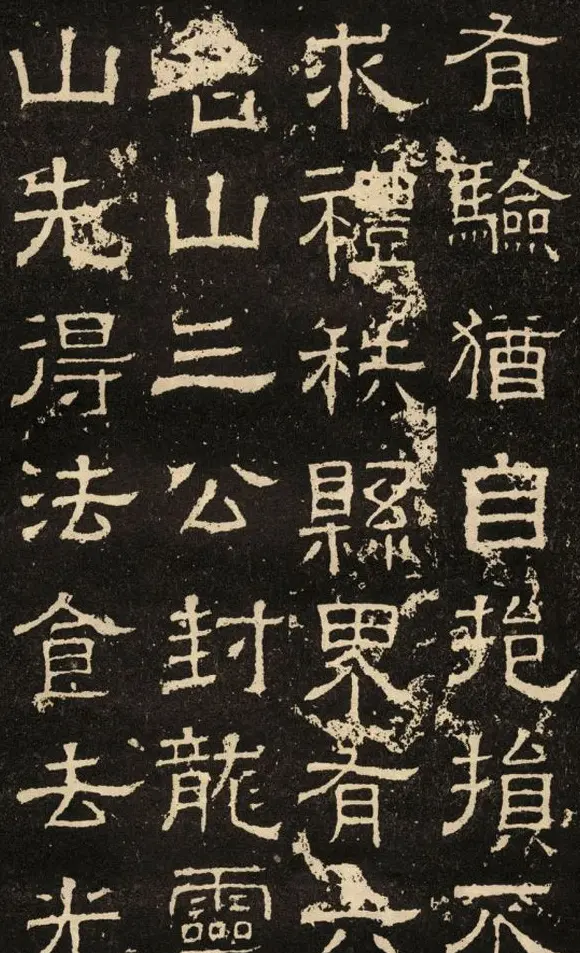 有驗猶自挹損不
求禮秩縣界有六
名山三公封龍靈
山先得法食去光